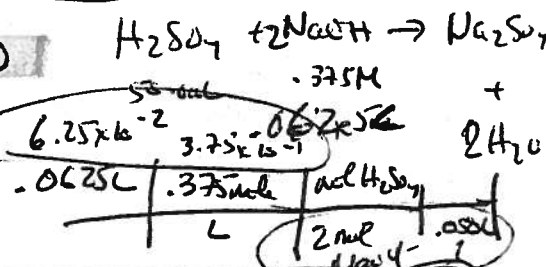 H₂SO₄ + 2NaOH → Na₂SO₄
.375M
+
50 mL
6.25x10⁻² 3.75x10⁻¹
2H₂O
.0625L | .375mole | mol H₂SO₄
L | 2 mol | .050L